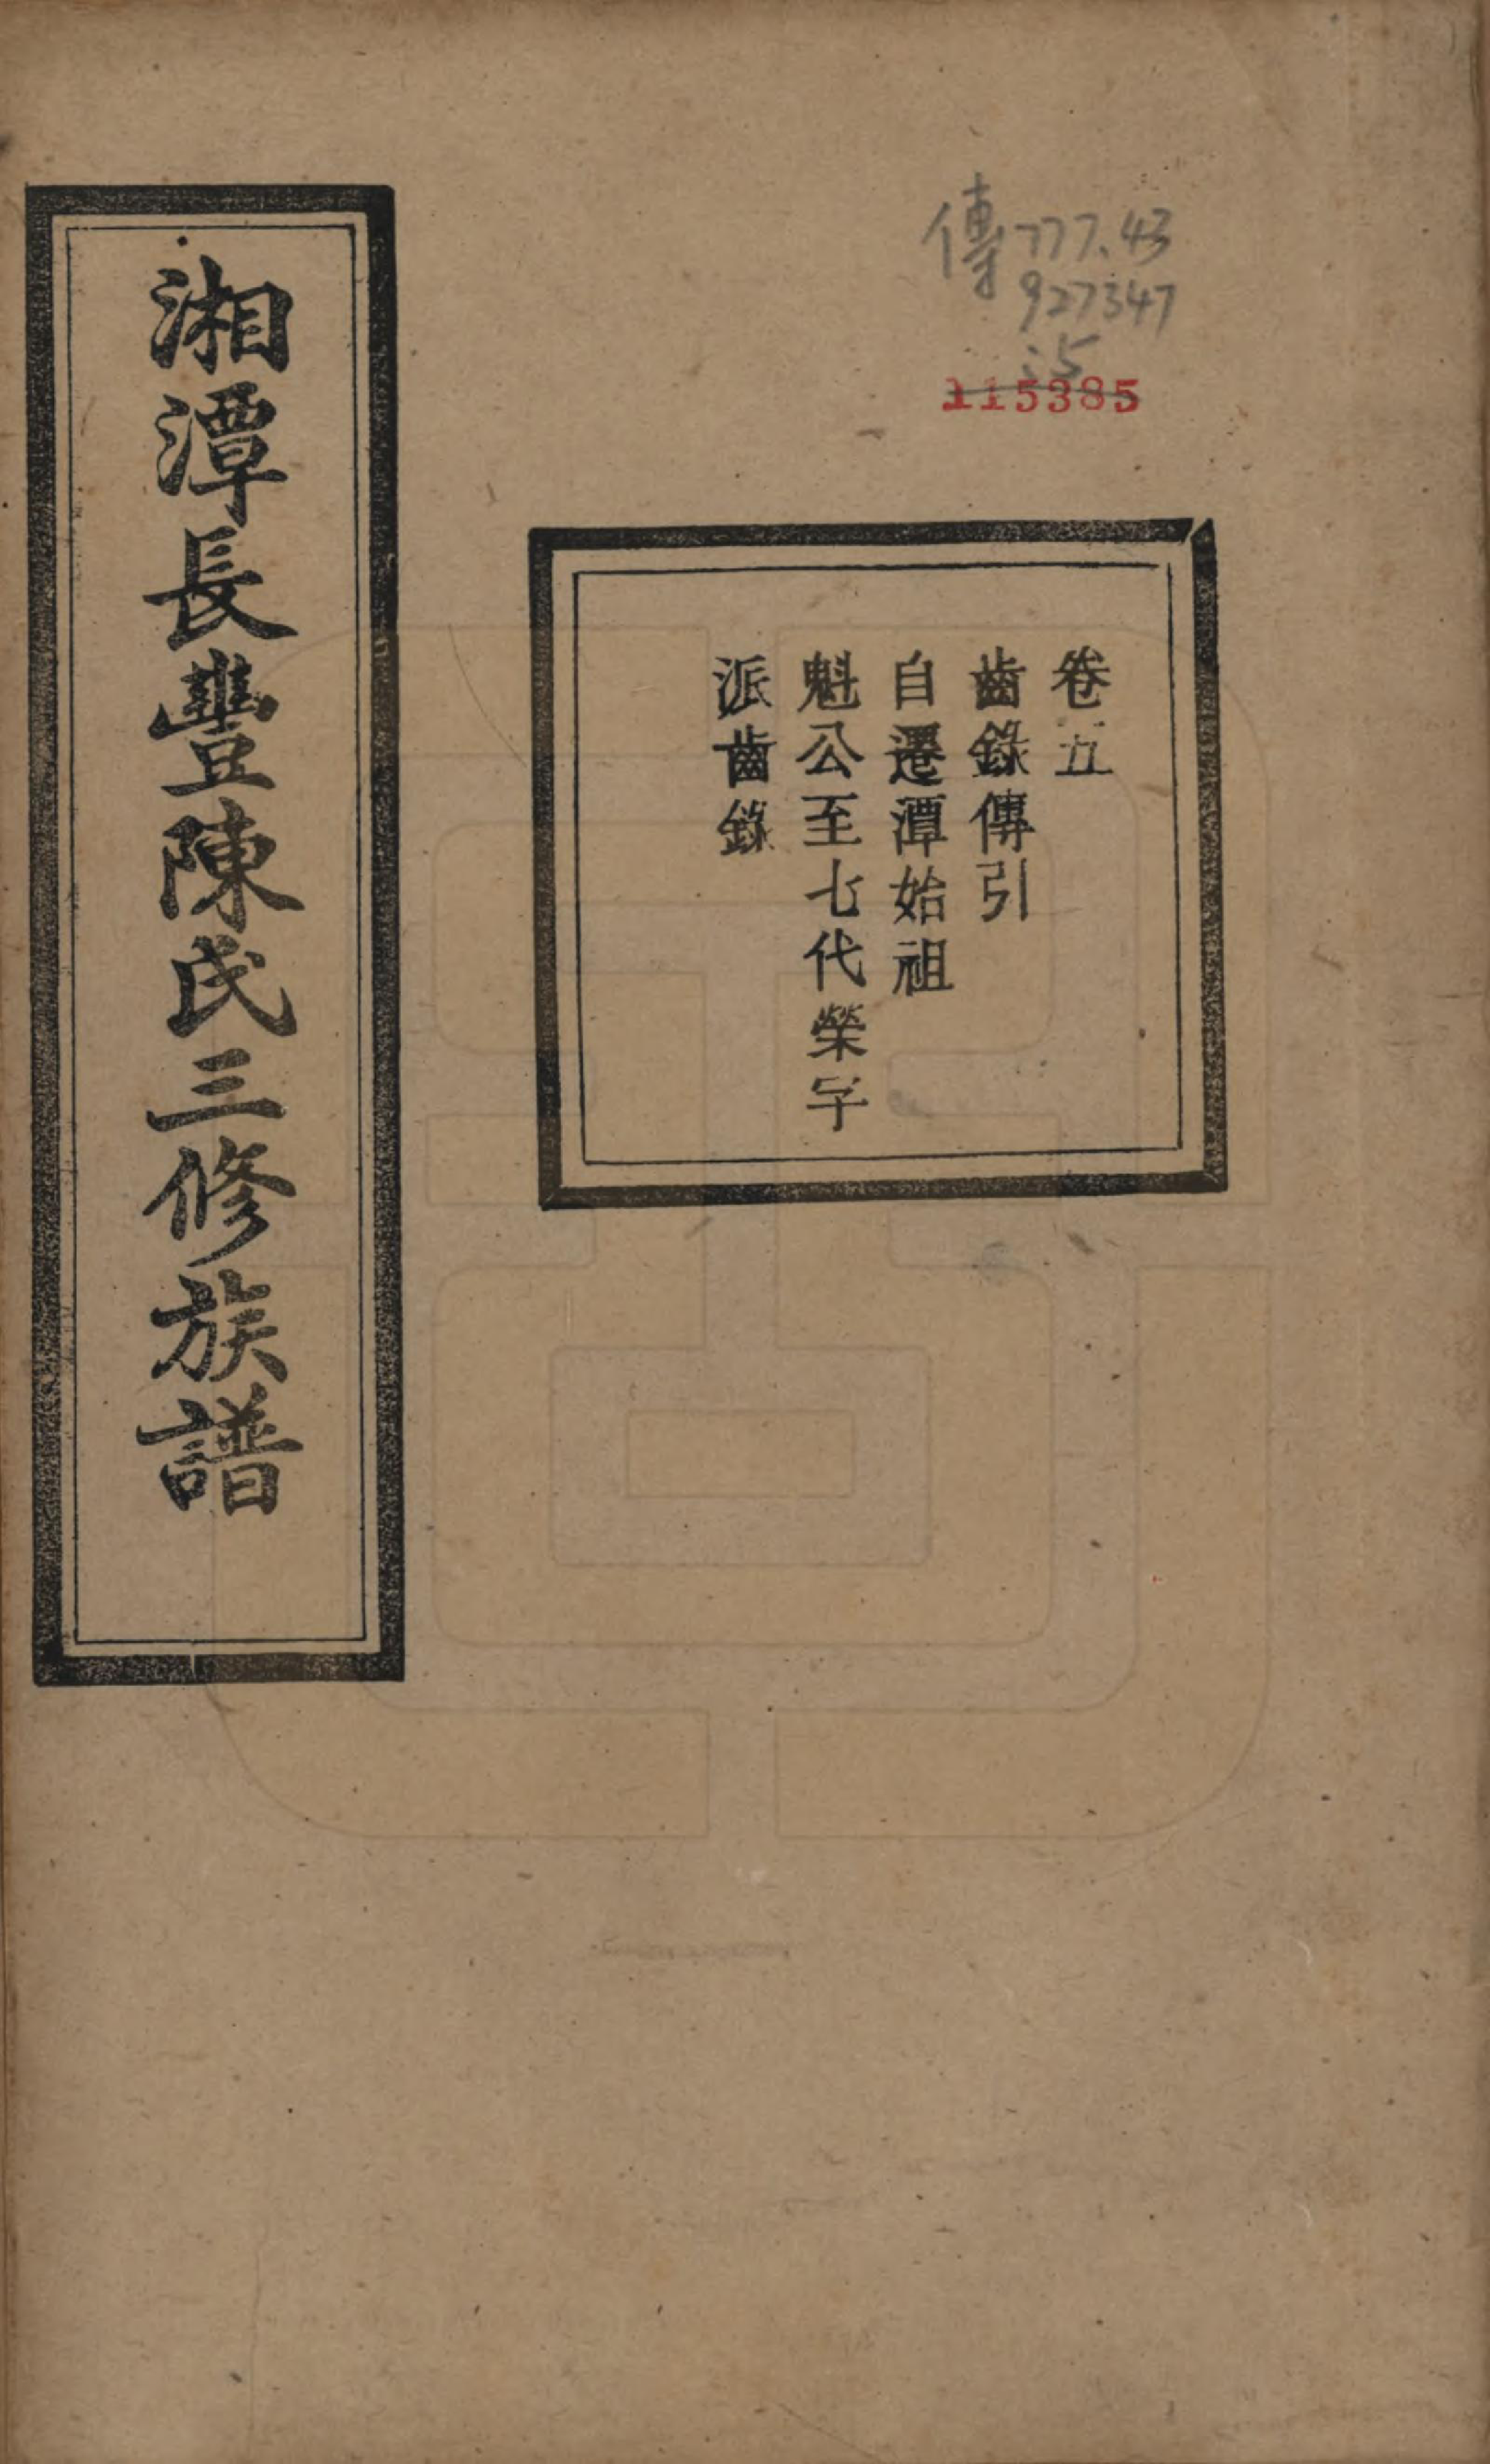 傳 777.43
927347
:5
115385
卷五
齒錄傳引
自遷潭始祖
魁公至七代榮字
派齒錄
湘潭長豐陳氏三修族譜